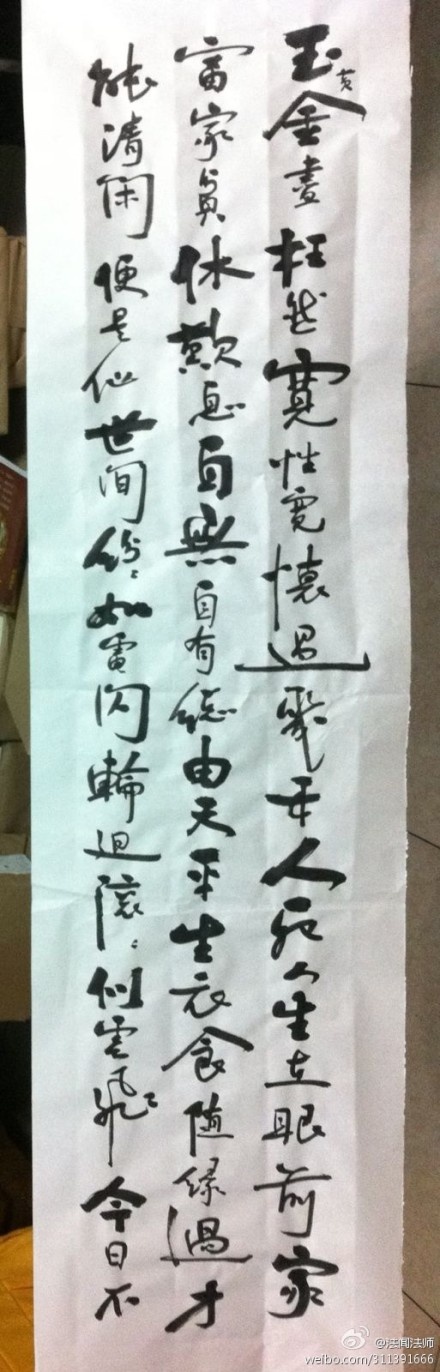 玉黄金盡枉然寬性寬懷過幾年人死人生在眼前家
富家貧休歎息自無自有總由天平生衣食隨緣過才
能清閑便是仙世間紛々如電閃輪迴滾々似雲飛今日不
@法闻法师
weibo.com/311391666